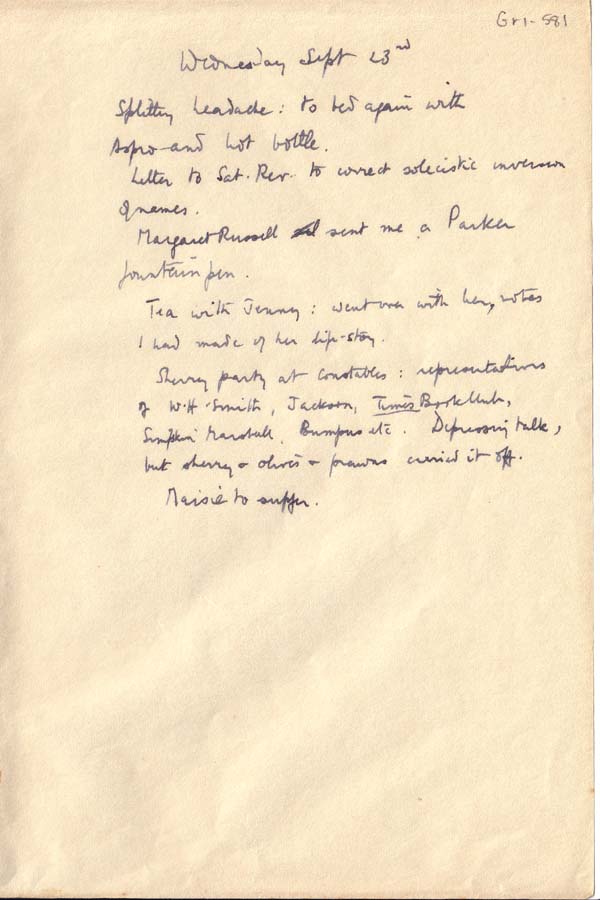 Gr1-581
Wednesday Sept 23rd
Splitting headache: to bed again with
Aspro and hot bottle.
Letter to Sat. Rev. to correct solecistic inversion
of names.
Margaret Russell sent me a Parker
fountain pen.
Tea with Jenny: went over with her, notes
I had made of her life-story.
Sherry party at Constables: representatives
of W.H. Smith, Jackson, Times Book Club,
Simpkin Marshall, Bumpus etc. Depressing talk,
but sherry & olives & prawns carried it off.
Maisie to supper.